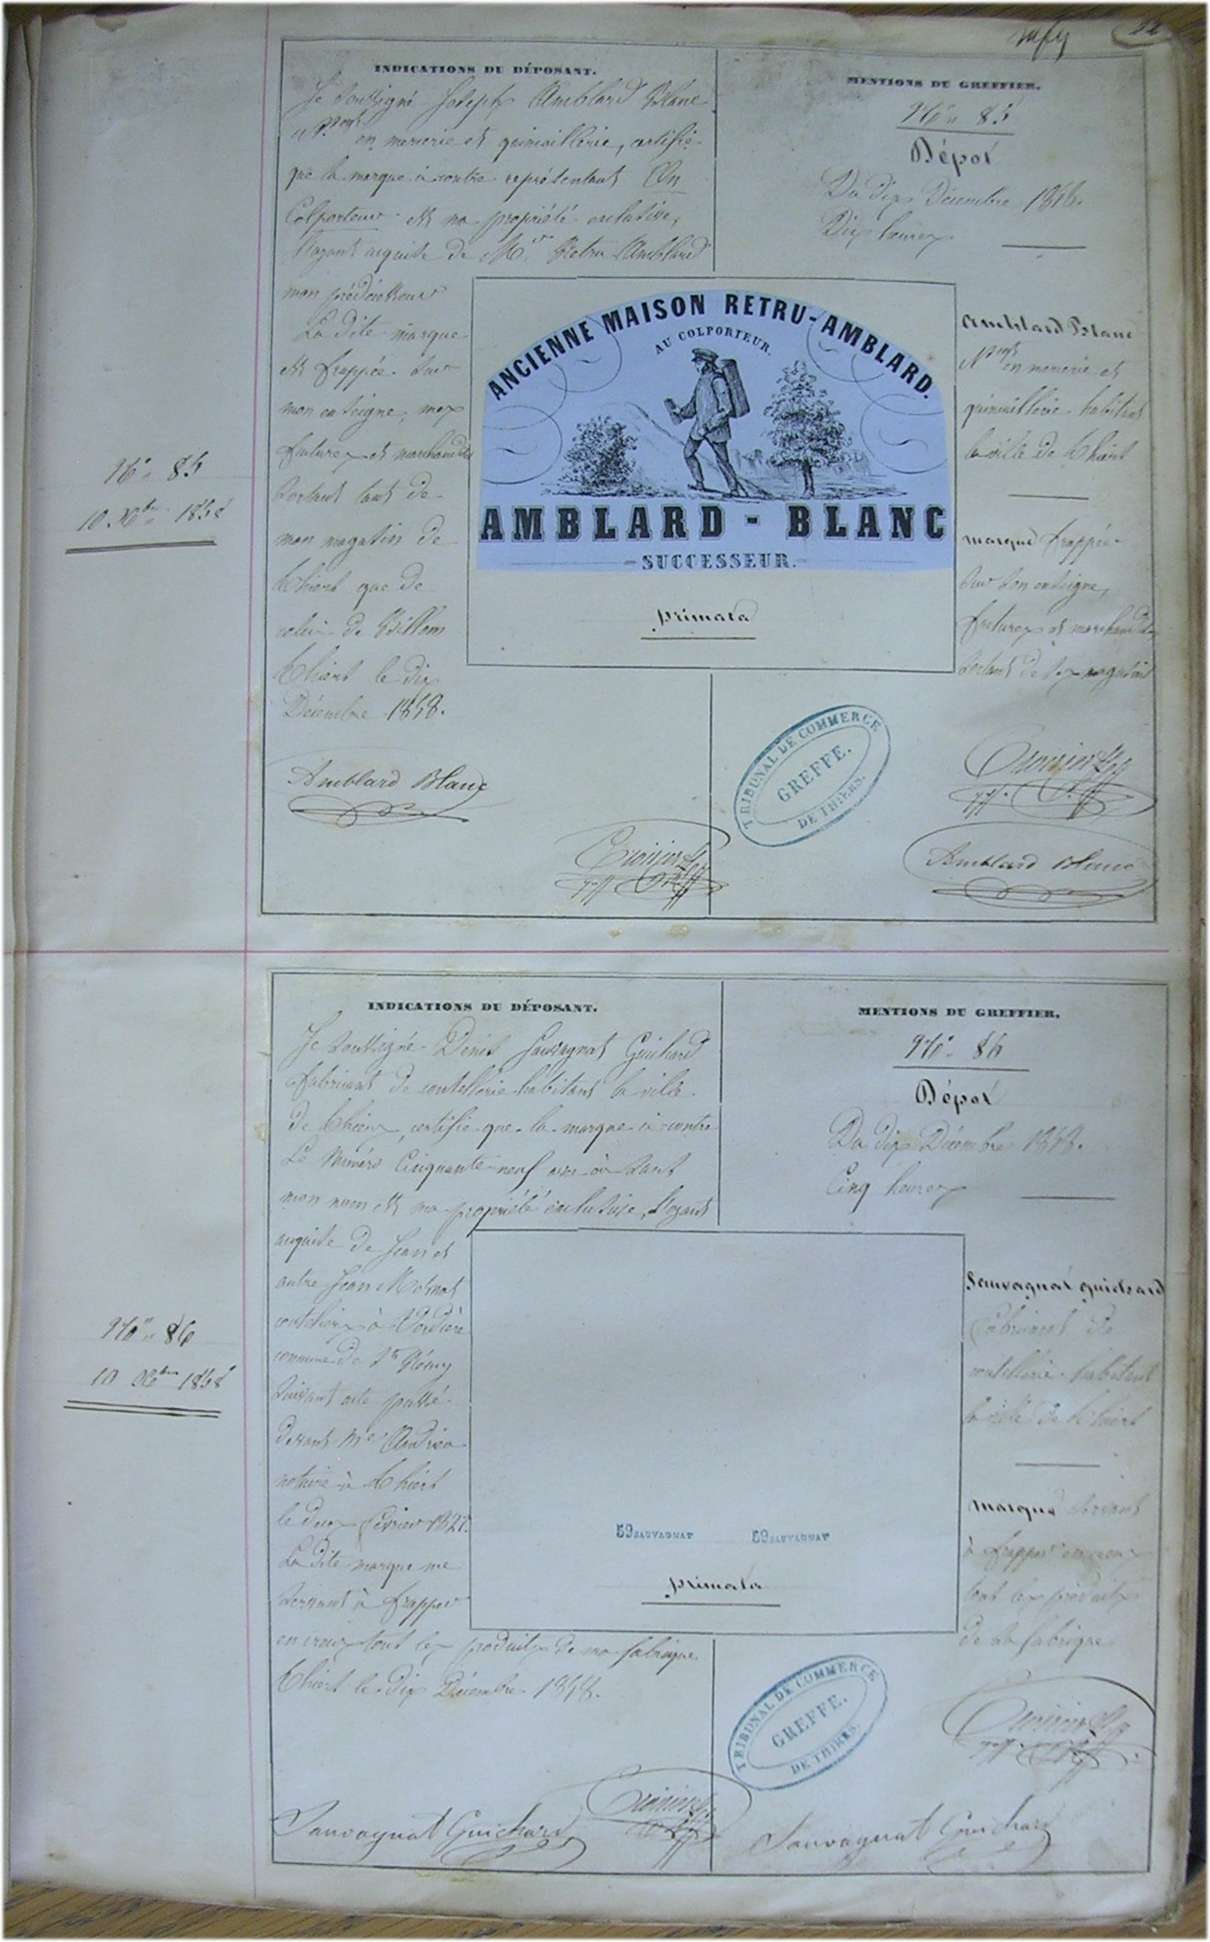 INDICATIONS DU DÉPOSANT.
Je soussigné Joseph Amblard Blanc
en mercerie et quincaillerie, certifie
que la marque ci contre représentant Un
Colporteur est ma propriété exclusive,
l'ayant acquise de Mr Retru Amblard
mon prédécesseur
La dite marque
est frappée sur
mon enseigne, mes
factures et marchandises
sortant tant de
mon magasin de
Thiers que de
celui de Billom
Thiers le dix
Décembre 1858.
Amblard Blanc
MENTIONS DU GREFFIER.
No 85
Dépot
Du dix Décembre 1858.
Dix heures
Amblard Blanc
en mercerie et
quincaillerie habitant
la ville de Thiers
marque frappée
sur son enseigne,
factures et marchandises
sortant de ses magasins
Amblard Blanc
ANCIENNE MAISON RETRU-AMBLARD.
AU COLPORTEUR.
AMBLARD - BLANC
SUCCESSEUR.
primata
TRIBUNAL DE COMMERCE
GREFFE.
DE THIERS.
No 85
10 Xbre 1858
INDICATIONS DU DÉPOSANT.
Je soussigné Denis Sauvagnat Guichard
fabricant de coutellerie habitant la ville
de Thiers, certifie que la marque ci contre
Le Numéro Cinquante-neuf
mon nom est ma propriété exclusive, l'ayant
acquise de Jean et
autre Jean
couteliers à
commune de St Rémy
suivant acte passé
devant Me Andrieu
notaire à Thiers
le deux février 1827.
La dite marque me
servant à frapper
en creux tout les produits de ma fabrique
Thiers le dix Décembre 1858.
Sauvagnat Guichard
MENTIONS DU GREFFIER.
No 86
Dépot
Du dix Décembre 1858.
Cinq heures
Sauvagnat guichard
fabricant de
coutellerie habitant
la ville de Thiers
marque servant
à frapper en creux
tout les produits
de sa fabrique
Sauvagnat Guichard
59 SAUVAGNAT 59 SAUVAGNAT
primata
TRIBUNAL DE COMMERCE
GREFFE.
DE THIERS.
No 86
10 Xbre 1858